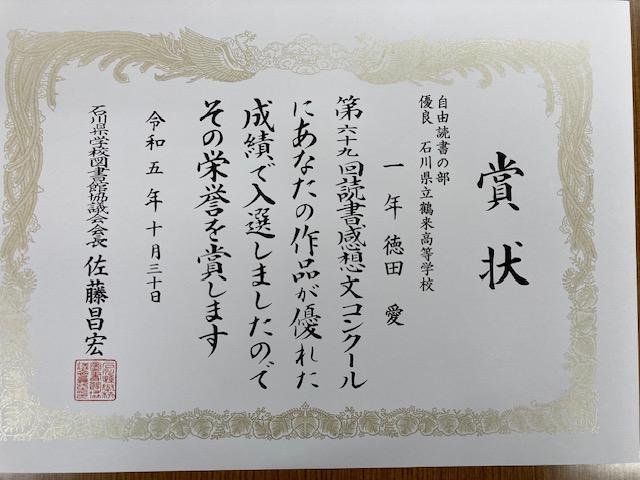 賞状
自由読書の部
優良 石川県立鶴来高等学校
一年 徳田 愛
第六十九回読書感想文コンクール
にあなたの作品が優れた
成績で入選しましたので
その栄誉を賞します
令和五年十月三十日
石川県学校図書館協議会会長 佐藤昌宏